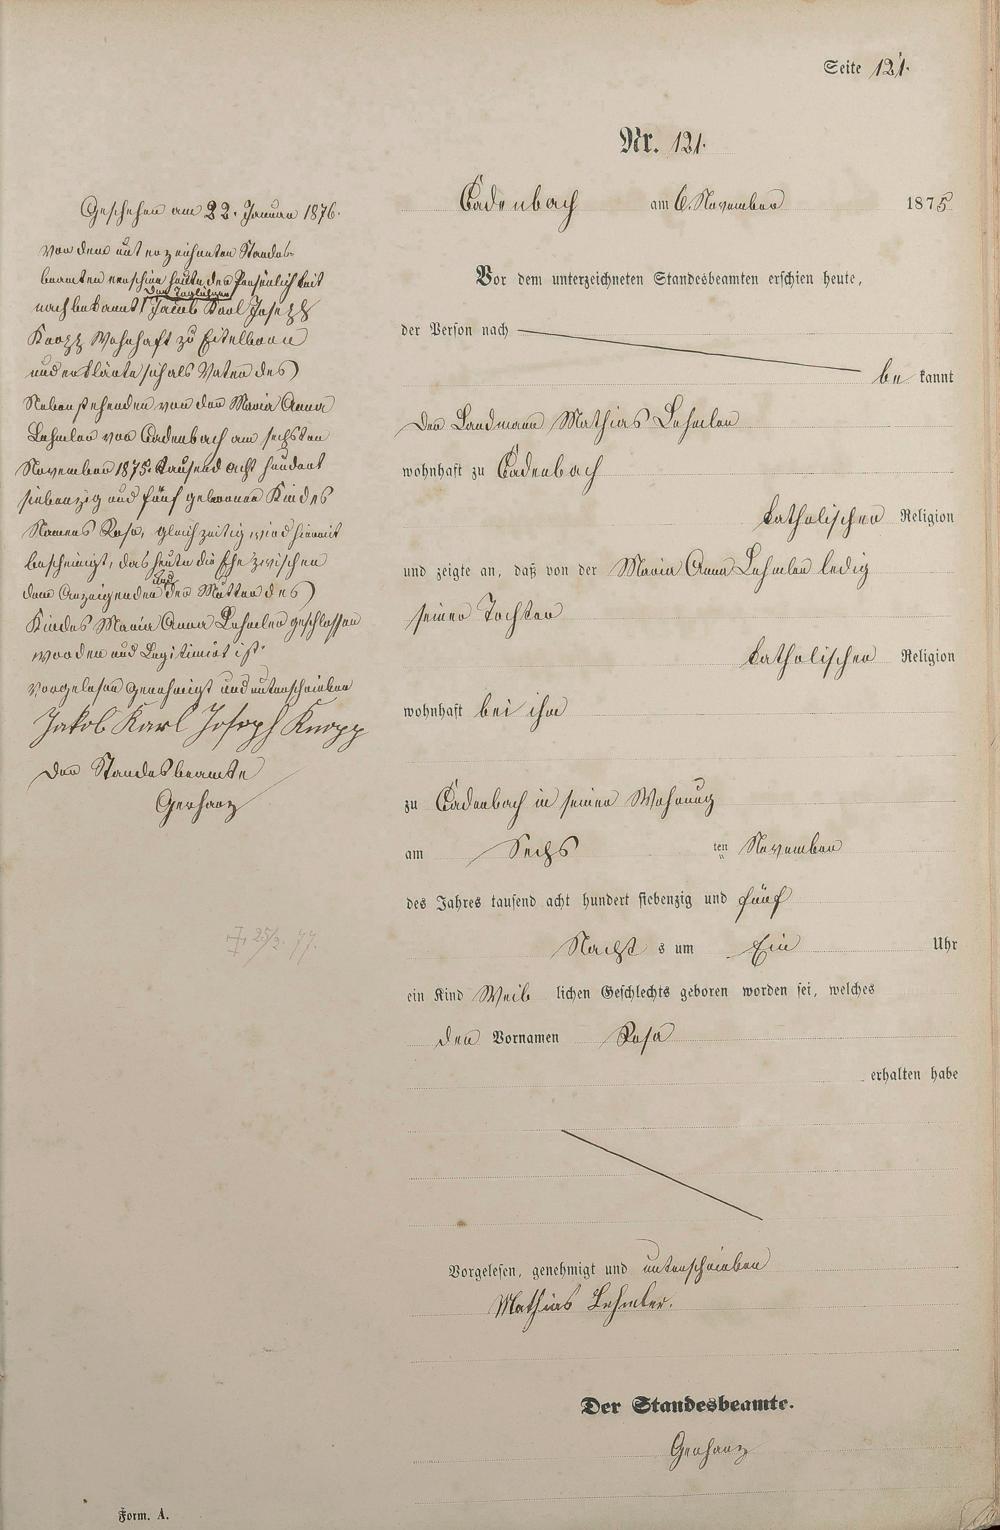 Seite 121.
Nr. 121.
Cadenbach am 6. November 1875
Vor dem unterzeichneten Standesbeamten erschien heute,
der Person nach
be kannt
der Landmann Mathias Lehmler
wohnhaft zu Cadenbach
katholischer Religion
und zeigte an, daß von der Maria Anna Lehmler ledig
seiner Tochter
katholischer Religion
wohnhaft bei ihm
zu Cadenbach in seiner Wohnung
am Sechs ten November
des Jahres tausend acht hundert siebenzig und fünf
Nacht s um Ein Uhr
ein Kind Weib lichen Geschlechts geboren worden sei, welches
den Vornamen Rosa
erhalten habe
Vorgelesen, genehmigt und unterschrieben
Mathias Lehmler.
Der Standesbeamte.
Gerharz
Geschehen am 22. Januar 1876.
Vor dem unterzeichneten Standes-
beamten erschien heute der Persönlichkeit
der Taglöhner
nach bekannt Jacob Karl Joseph
Knopp Wohnhaft zu Eitelborn
und erklärte sich als Vater des
Nebenstehenden von der Maria Anna
Lehmler von Cadenbach am sechsten
November 1875. tausend acht hundert
siebenzig und fünf geborenen Kindes
Namens Rosa, gleichzeitig wird hiermit
bescheinigt, das heute die Ehe zwischen
und
dem Anzeigenden der Mutter des
Kindes Maria Anna Lehmler geschlossen
worden und Legitimirt ist.
vorgelesen genehmigt und unterschrieben
Jakob Karl Joseph Knopp
Der Standesbeamte
Gerharz
25/2. 77.
Form. A.